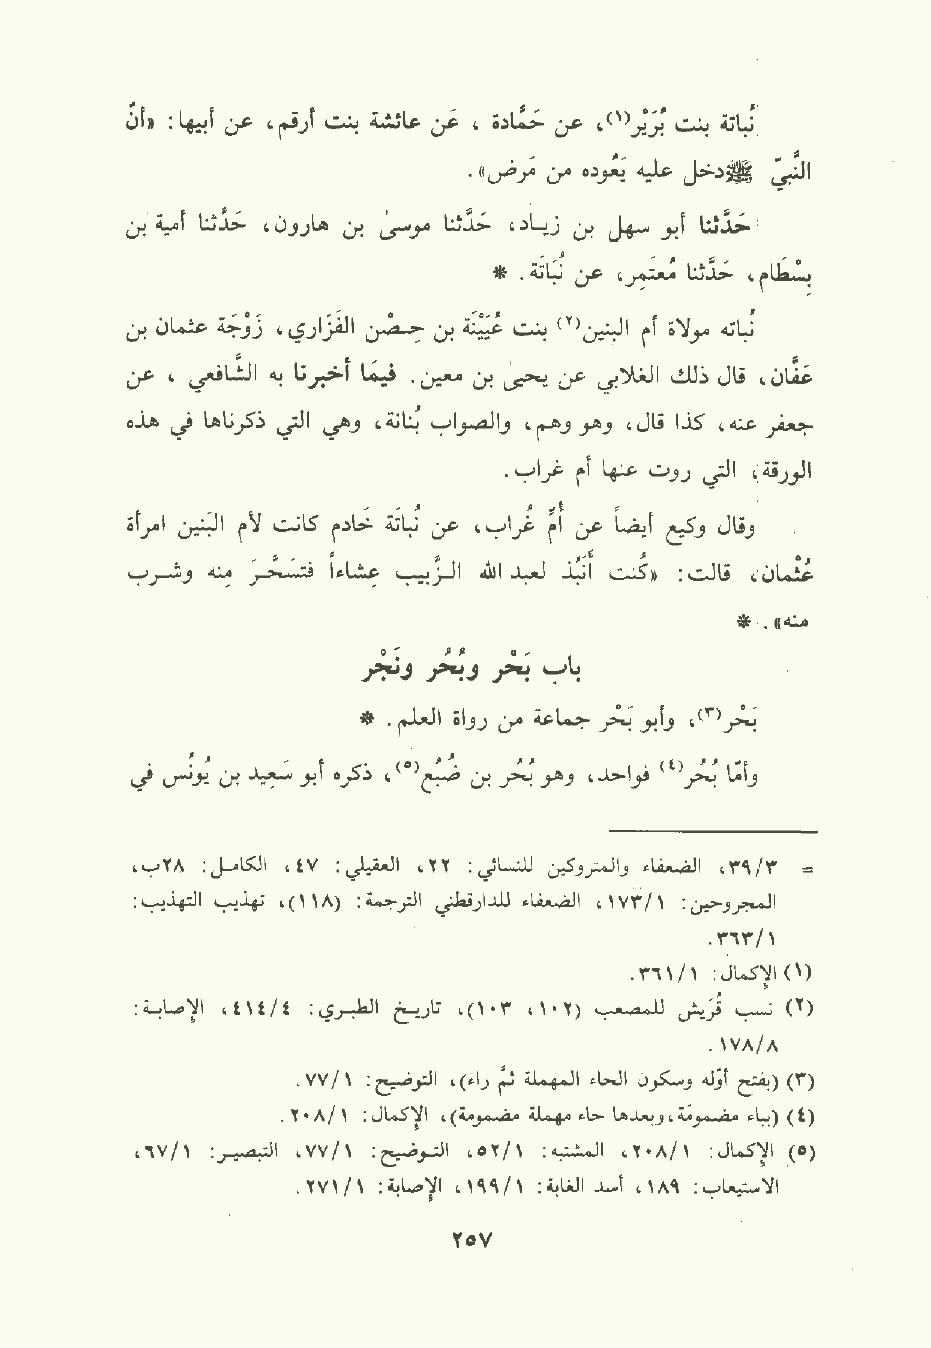 نُباتة بنت بُرَيْر(١)، عن حَمَّادة ، عَن عائشة بنت أرقم، عن أبيها: «أنّ
النَّبيّ ﷺ دخل عليه يَعُوده من مَرَض».
حَدَّثنا أبو سهل بن زياد، حَدَّثنا موسىٰ بن هارون، حَدَّثنا أمية بن
بِسْطَام، حَدَّثنا مُعتَمِر، عن نُبَاتَة. *
نُباتة مولاة أم البنين(٢) بنت عُيَيْنَة بن حِـصْن الفَزَاري، زَوْجَة عثمان بن
عَفَّان، قال ذلك الغلابي عن يحيىٰ بن معين. فيمَا أخبرنا به الشَّافعي ، عن
جعفر عنه، كذا قال، وهو وهم، والصواب بُنانة، وهي التي ذكرناها في هذه
الورقة، التي روت عنها أم غراب.
وقال وكيع أيضاً عن أُمّ غُراب، عن نُبَاتَة خَادم كانت لأم البَنين امرأة
عُثْمان، قالت: «كُنت أَنْبُذ لعبد الله الـزَّبيب عشِاءاً فتَسَـحَّـر منِه وشـرب
منه». *
باب بَحْر وبُحُر ونَجْر
بَحْر(٣)، وأبو بَحْر جماعة من رواة العلم. *
وأمّا بُحُر(٤) فواحد، وهو بُحُر بن ضُبُع(٥)، ذكره أبو سَعِيد بن يُونُس في
= ٣٩/٣، الضعفاء والمتروكين للنسائي: ٢٢، العقيلي: ٤٧، الكامل: ٢٨ب،
المجروحين: ١٧٣/١، الضعفاء للدارقطني الترجمة: (١١٨)، تهذيب التهذيب:
٣٦٣/١.
(١) الإكمال: ٣٦١/١.
(٢) نسب قُرَيش للمصعب (١٠٢، ١٠٣)، تاريخ الطبري: ٤١٤/٤، الإصابة:
١٧٨/٨.
(٣) (بفتح أوّله وسكون الحاء المهملة ثمّ راء)، التوضيح: ٧٧/١.
(٤) (بباء مضمومة، وبعدها حاء مهملة مضمومة)، الإكمال: ٢٠٨/١.
(٥) الإكمال: ٢٠٨/١، المشتبه: ٥٢/١، التوضيح: ٧٧/١، التبصير: ٦٧/١،
الاستيعاب: ١٨٩، أسد الغابة: ١٩٩/١، الإصابة: ٢٧١/١.
٢٥٧